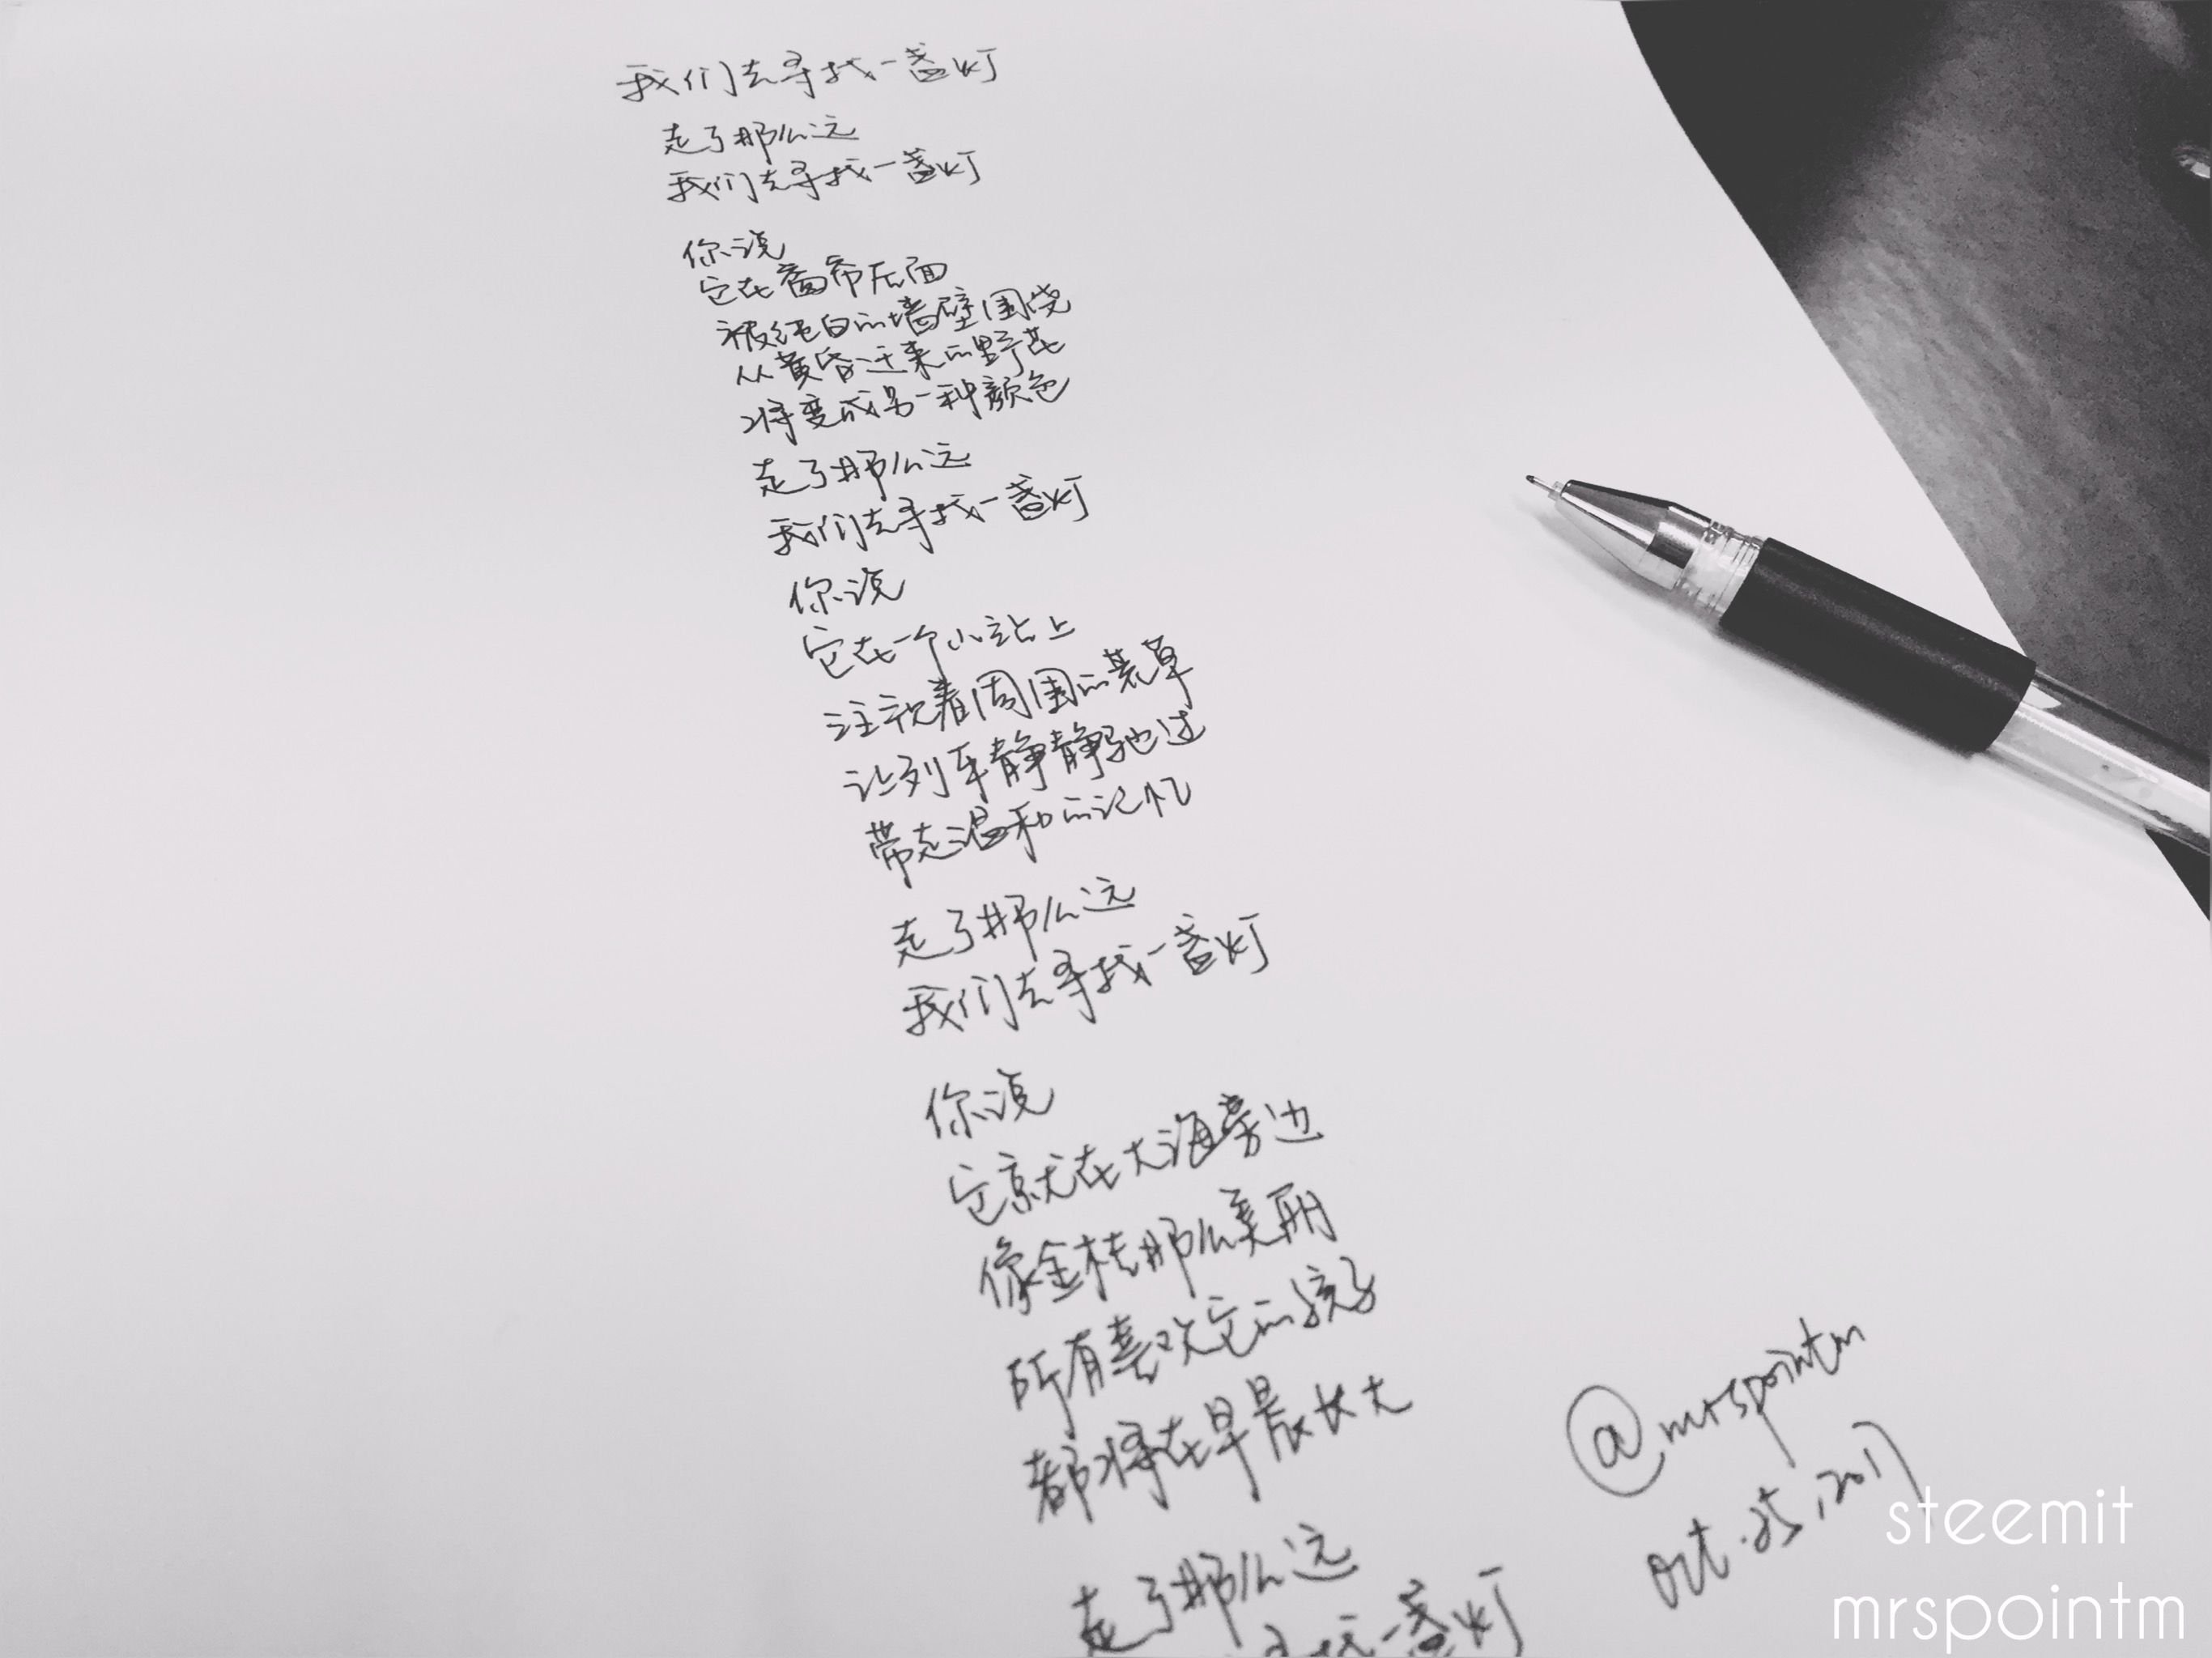 我们去寻找一盏灯
走了那么远
我们去寻找一盏灯
你说
它在窗帘后面
被纯白的墙壁围绕
从黄昏迁来的野花
将变成另一种颜色
走了那么远
我们去寻找一盏灯
你说
它在一个小站上
注视着周围的荒草
让列车静静驰过
带走温和的记忆
走了那么远
我们去寻找一盏灯
你说
它就在大海旁边
像金桔那么美丽
所有喜欢它的孩子
都将在早晨长大
走了那么远
寻找一盏灯
@mrspointm
oct.25,2017
steemit
mrspointm